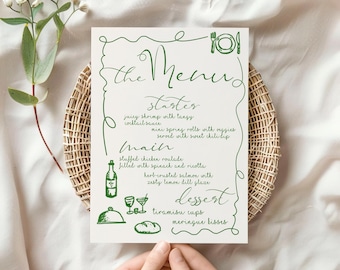 the Menu
starter
juicy shrimp with tangy
cocktail sauce
mini spring rolls with veggies
served with sweet chili dip
main
stuffed chicken roulade
filled with spinach and ricotta
herb-crusted salmon with
zesty lemon dill glaze
dessert
tiramisu cups
meringue kisses